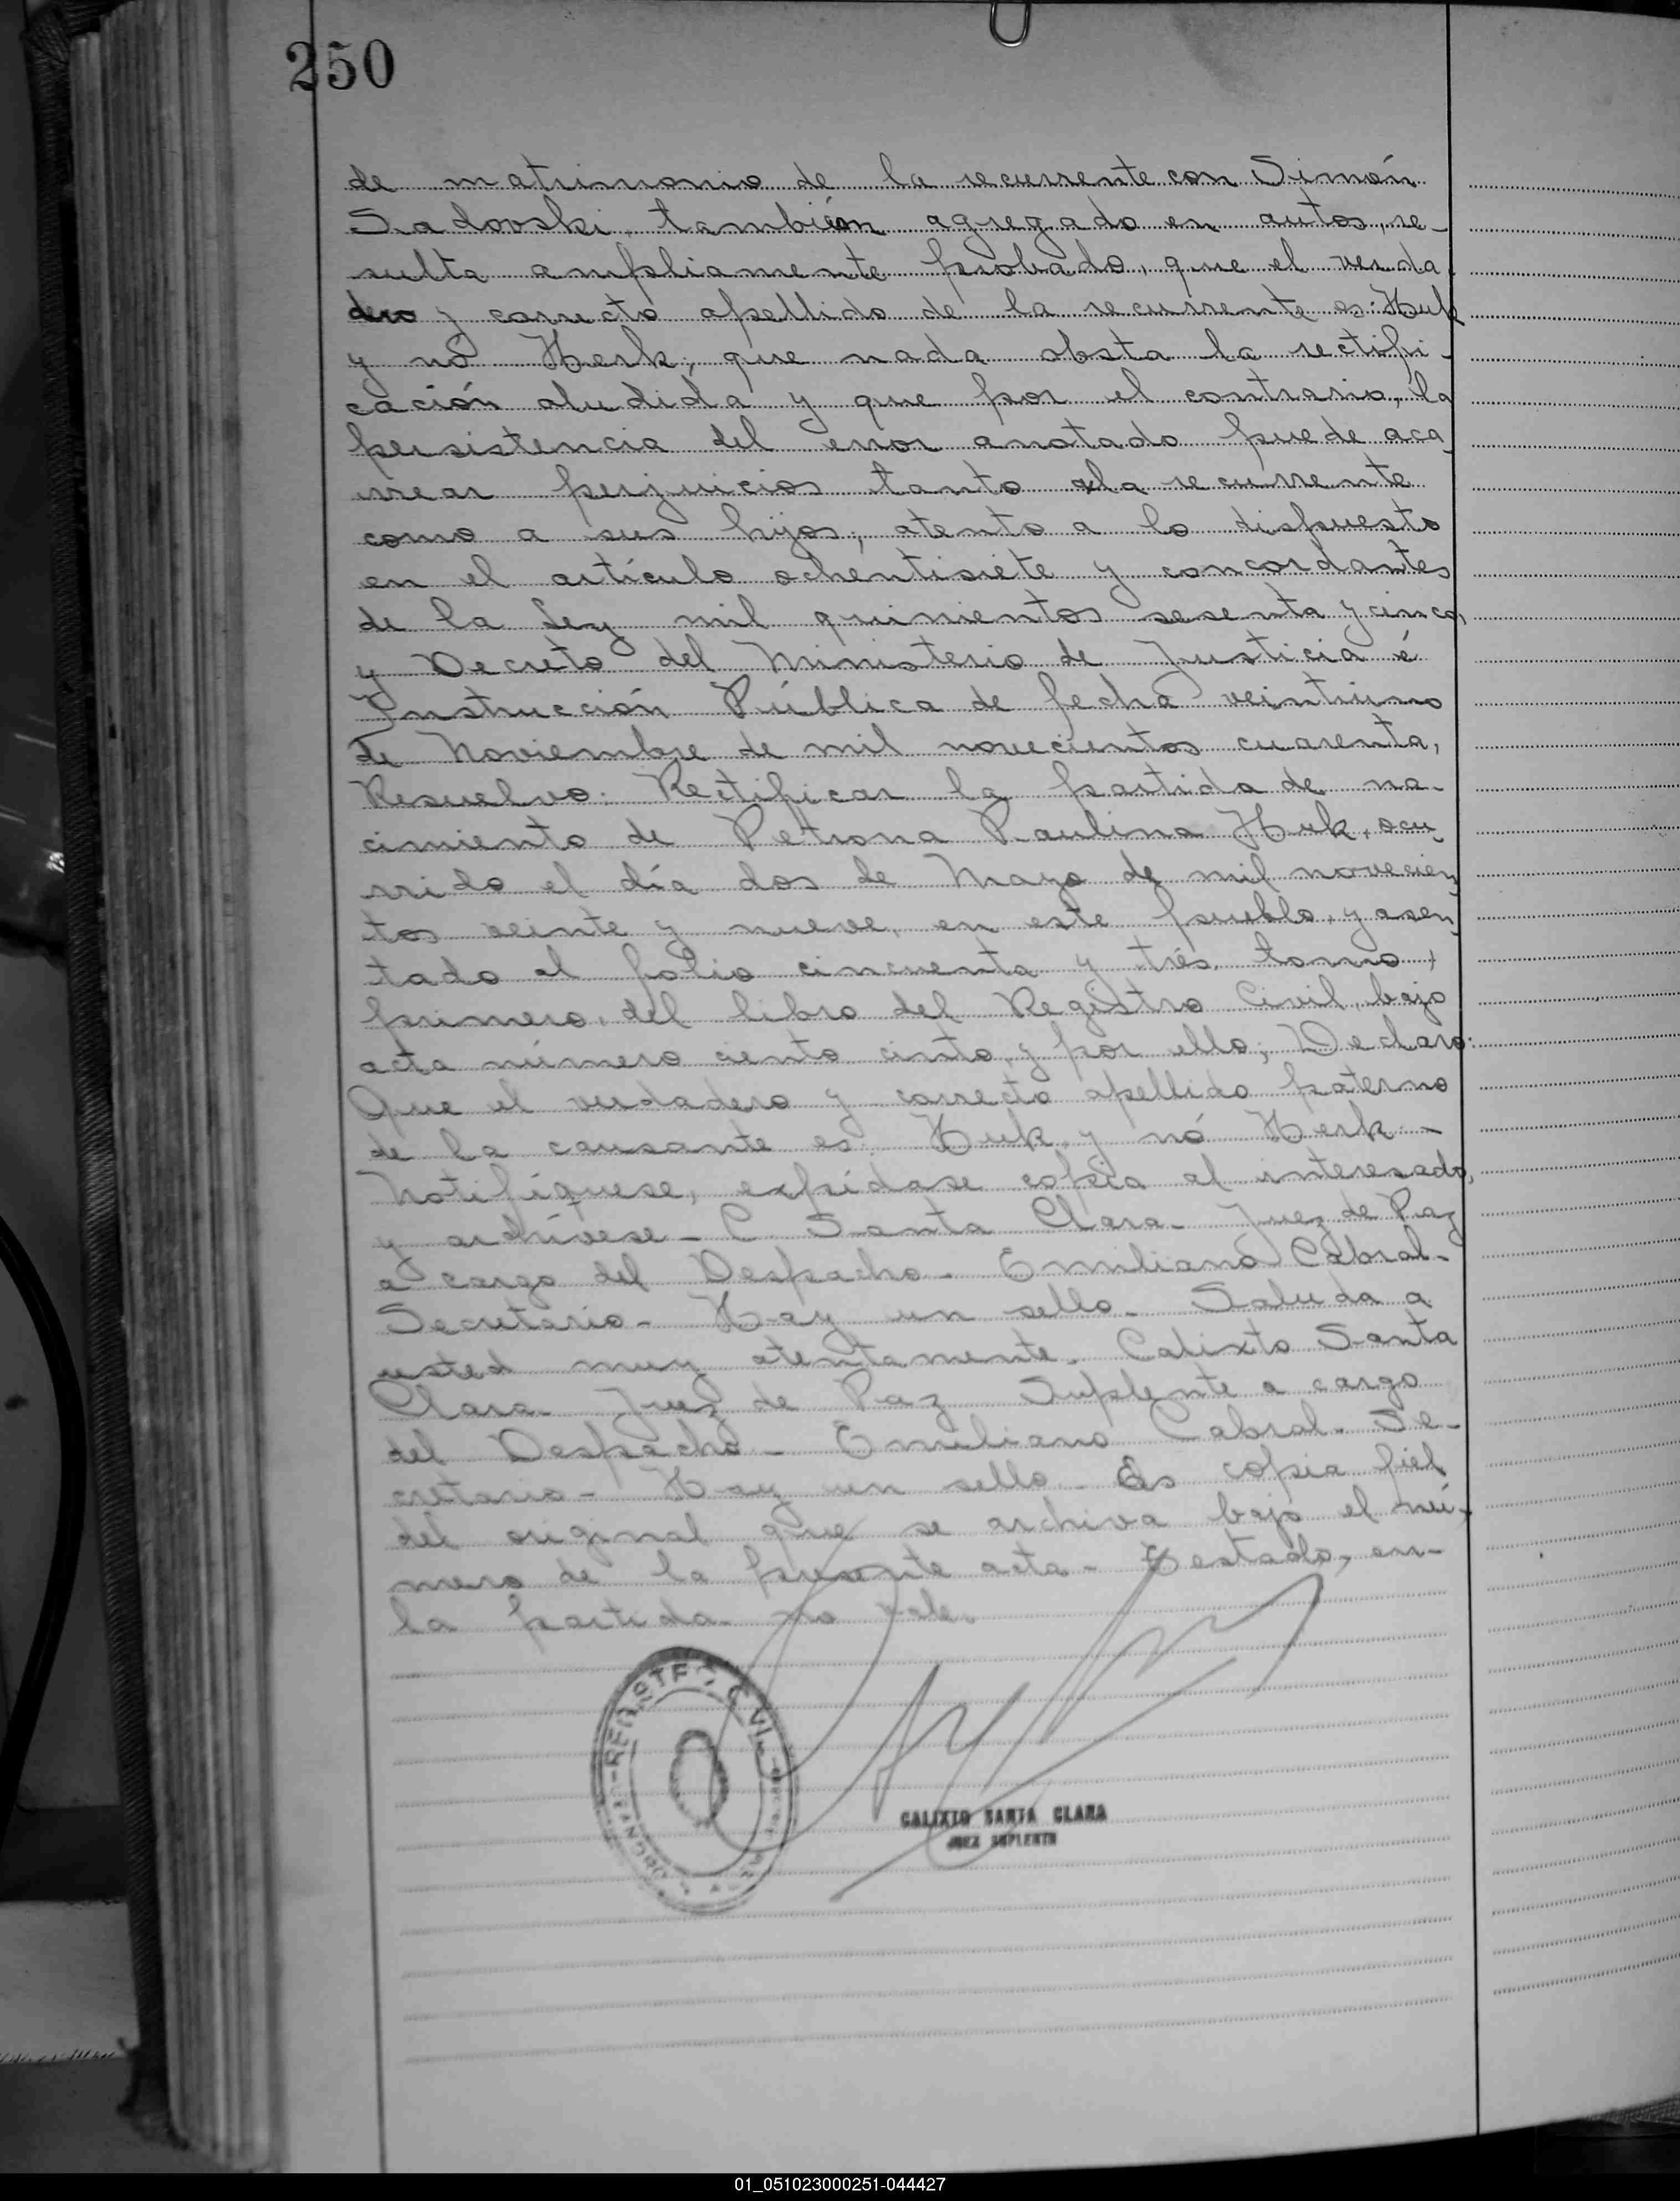 250
de matrimonio de la recurrente con Simón
Sadovski, también agregado en autos, re-
sulta ampliamente probado, que el verda-
dero y correcto apellido de la recurrente es: Huk
y nó Herk; que nada obsta la rectifi-
cación aludida y que por el contrario, la
persistencia del error anotado puede aca
rrear perjuicios tanto a la recurrente
como a sus hijos; atento a lo dispuesto
en el artículo ochentisiete y concordantes
de la Ley mil quinientos sesenta y cinco,
y Decreto del Ministerio de Justicia é
Instrucción Pública de fecha veintiuno
de Noviembre de mil novecientos cuarenta,
Resuelvo: Rectificar la partida de na-
cimiento de Petrona Paulina Huk, ocu-
rrido el día dos de Mayo de mil novecien
tos veinte y nueve, en este pueblo, y asen
tado al folio cincuenta y trés, tomo
primero, del libro del Registro Civil, bajo
acta número ciento cinto, y por ello; Declaro:
Que el verdadero y correcto apellido paterno
de la causante es: Huk, y nó Herk-
Notifíquese, expídase copia al interesado,
y archívese- C. Santa Clara- Juez de Paz
a cargo del Despacho- Emiliano Cabral-
Secretario- Hay un sello- Saluda a
usted muy atentamente. Calixto Santa
Clara- Juez de Paz Suplente a cargo
del Despacho- Emiliano Cabral- Se-
cretario- Hay un sello- Es copia fiel
del original que se archiva bajo el nú-
mero de la presente acta- Testado, en-
la partida- no vale.
REGISTRO CIVIL
CALIXTO SANTA CLARA
JUEZ SUPLENTE
01_051023000251-044427